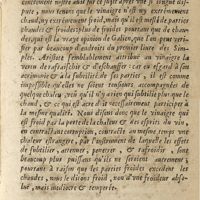 pute, nous tenons que le vinaigre n'est ny excessiuement
chaud, ny extremement froid, mais qu'il est meslé de parties
chaudes & froides, plus de froides pourtant que de chau-
des, qui est la vraye opinion de Galien, que l'on peut veri-
fier par beaucoup d'endroits du premier liure des Sim-
ples. Aristote semblablement attribue au vinaigre la
vertu de rafraischir & d'eschauffer: car eu égard à son
acrimonie & à la subtilité de ses parties, il est comme
impossible qu'elles ne soient accompagnées de quelque
chaleur étrangere, veu qu'il n'y a rien qui subtilise que le
chaud, & ce qui est acre doit necessairement participer à
la mesme qualité. Nous disons donc que le vinaigre qui
est froid par la perte de la chaleur & des esprits du vin,
en contractant corruption, contracte au mesme temps vne
chaleur estrangere, par l'entremise de laquelle les effets
de subtilier, attenuer, penetrer, & rafroidir, sont
beaucoup plus puissans qu'ils ne seroient autrement:
pourtant à raison que les parties froides excellent les
chaudes, nous le disons froid, non d'vne froideur abso-
luë, mais mediocre & temperée.